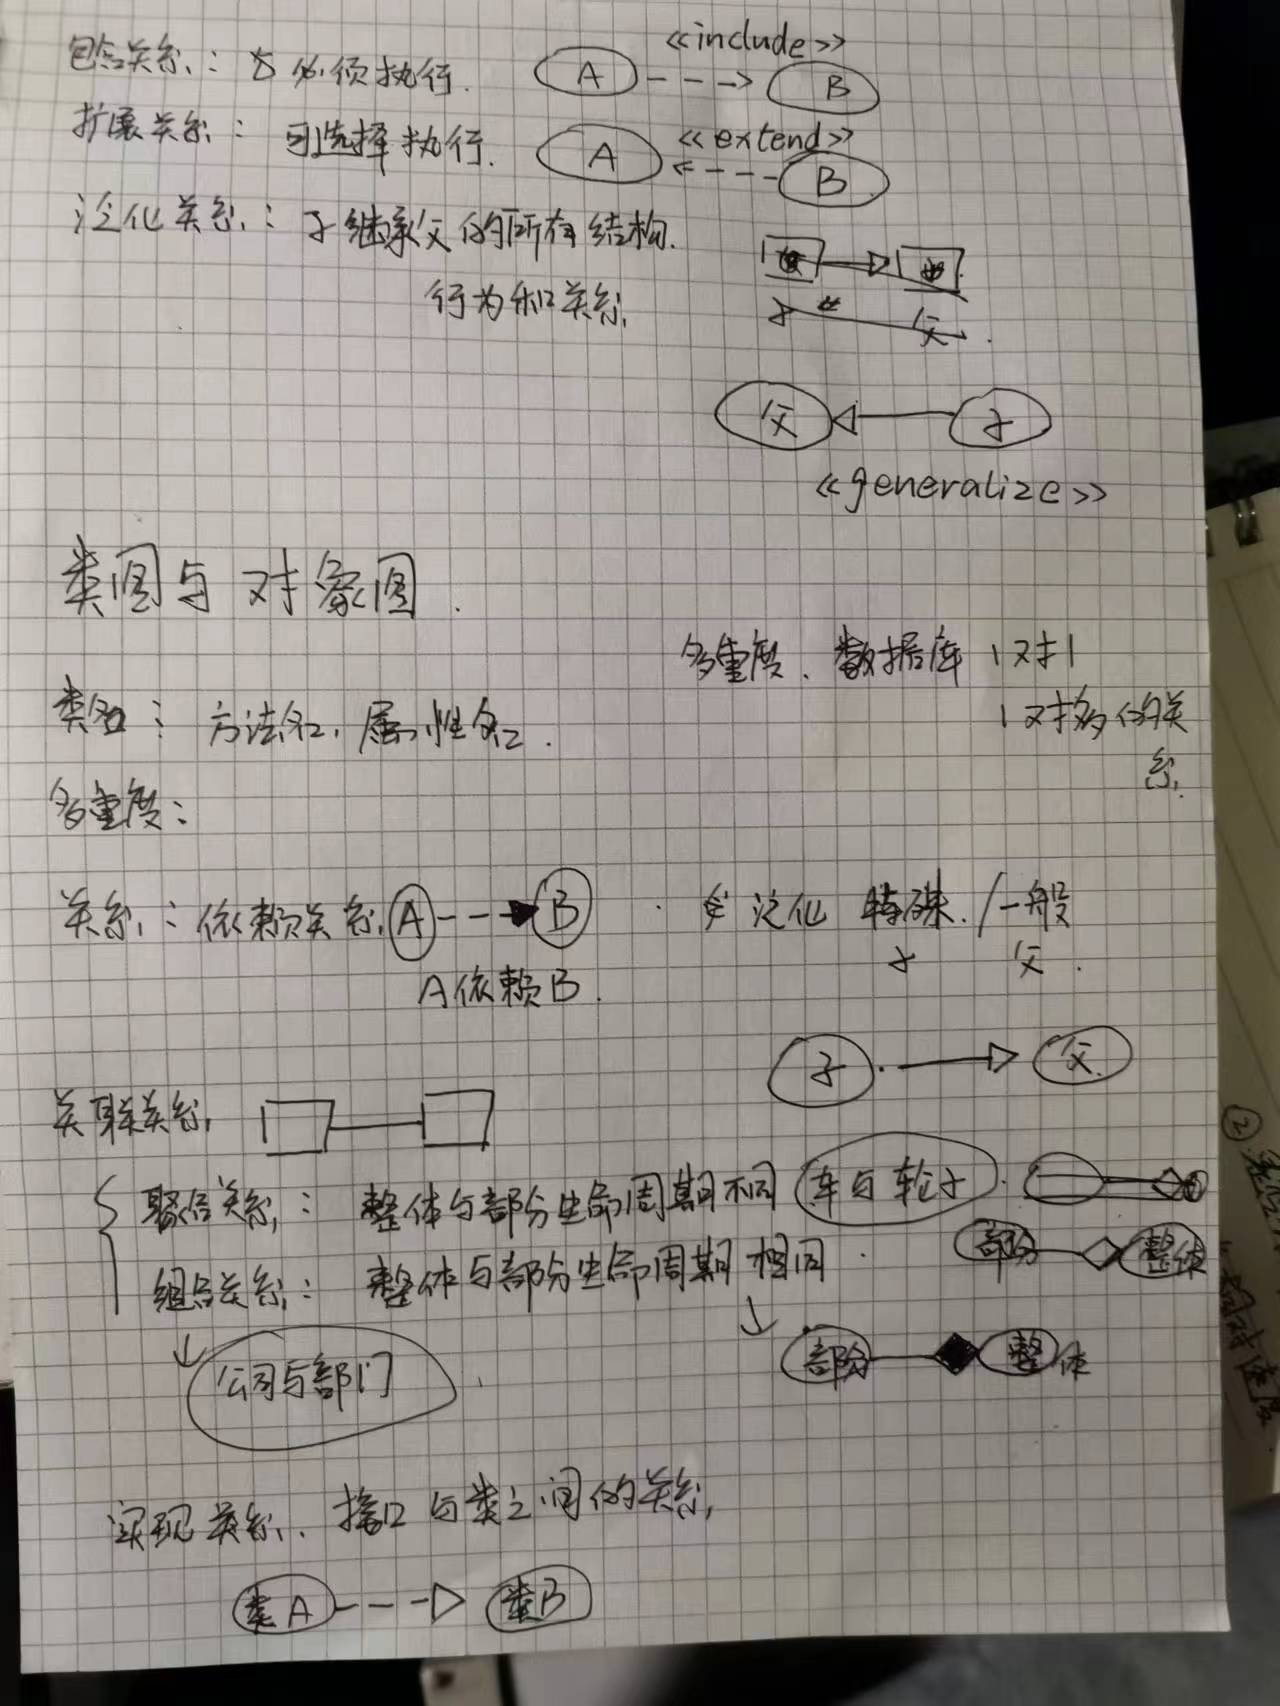 包含关系：必须执行. A <<include>> B
扩展关系：可选择执行. A <<extend>> B
泛化关系：子继承父的所有结构.
行为和关系
子 父.
父 子
<<generalize>>
类图与对象图.
多重度. 数据库 1对1
1对多的关
系.
类名：方法名, 属性名.
多重度：
关系：依赖关系 A B
A依赖B.
泛化 特殊. / 一般
子 父.
子 父
关联关系
聚合关系：整体与部分生命周期不同 车与轮子.
部分 整体
组合关系：整体与部分生命周期相同
部分 整体
公司与部门
实现关系. 接口与类之间的关系
类A 类B
②